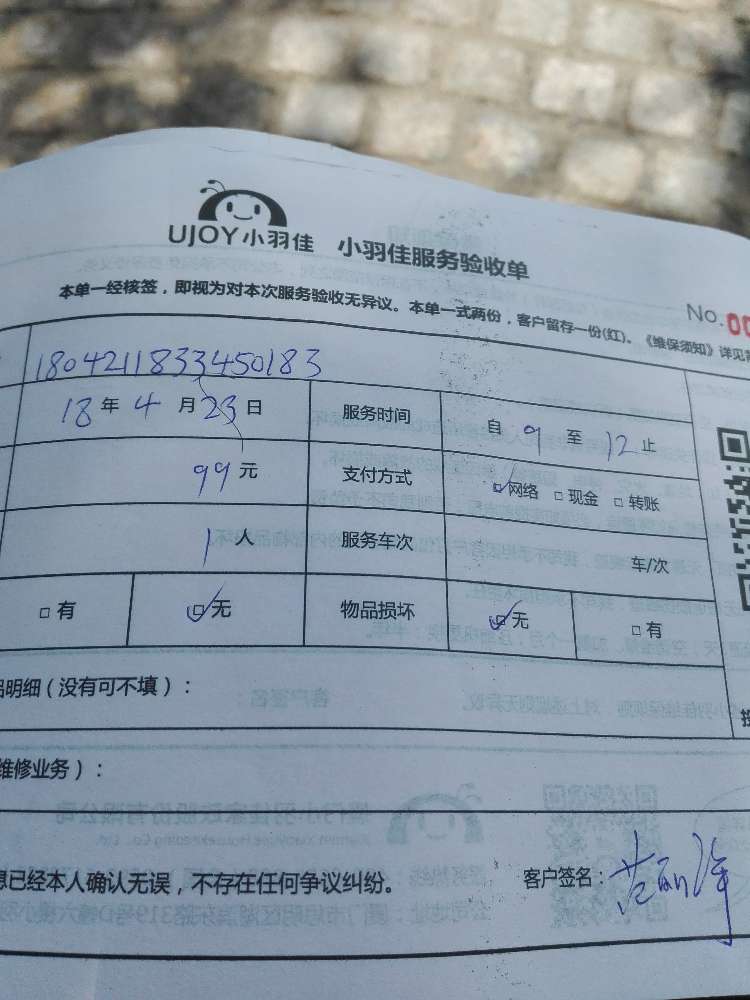 UJOY小羽佳 小羽佳服务验收单
本单一经核签，即视为对本次服务验收无异议。本单一式两份，客户留存一份(红)。《维保须知》详见
No.00
1804211833450183
18年4月23日 服务时间 自9至12止
99元 支付方式 ☑网络 □现金 □转账
1人 服务车次 车/次
□有 ☑无 物品损坏 ☑无 □有
明细(没有可不填)：
维修业务)：
已经本人确认无误，不存在任何争议纠纷。 客户签名：